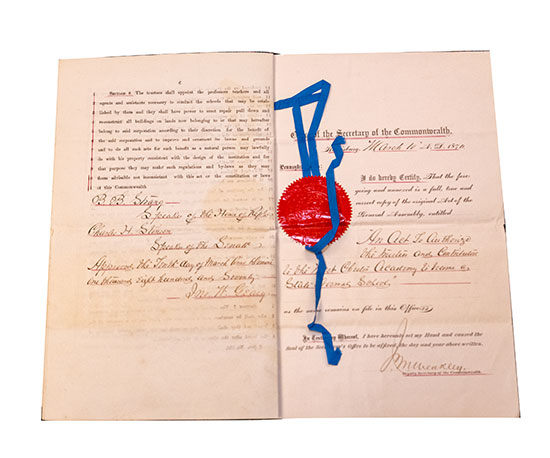 6
Section 6. The trustees shall appoint the professors teachers and all
agents and assistants necessary to conduct the schools that may be estab-
lished by them and they shall have power to erect repair pull down and
reconstruct all buildings on lands now belonging to or that may hereafter
belong to said corporation according to their discretion for the benefit of
the said corporation and to improve and ornament the lawns and grounds
and to do all such acts for such benefit as a natural person may lawfully
do with his property consistent with the design of the institution and for
that purpose they may make such regulations and bylaws as they may
deem advisable not inconsistent with this act or the constitution or laws
of this Commonwealth
B. B. Strang
Speaker of the House of Rep
Charles H. Stinson
Speaker of the Senate
Approved the Tenth day of March Anno Domini
one thousand eight hundred and seventy
Jno W. Geary
Office of the Secretary of the Commonwealth,
March 10 A.D. 1870
Pennsylvania
I do hereby Certify, That the fore-
going and annexed is a full, true and
correct copy of the original Act of the
General Assembly, entitled
An Act To Authorize
the Trustees and Contributors
to the West Chester Academy to become a
State Normal School
as the same remains on file in this Office.
In Testimony Whereof, I have hereunto set my Hand and caused the
Seal of the Secretary's Office to be affixed, the day and year above written.
Deputy Secretary of the Commonwealth.